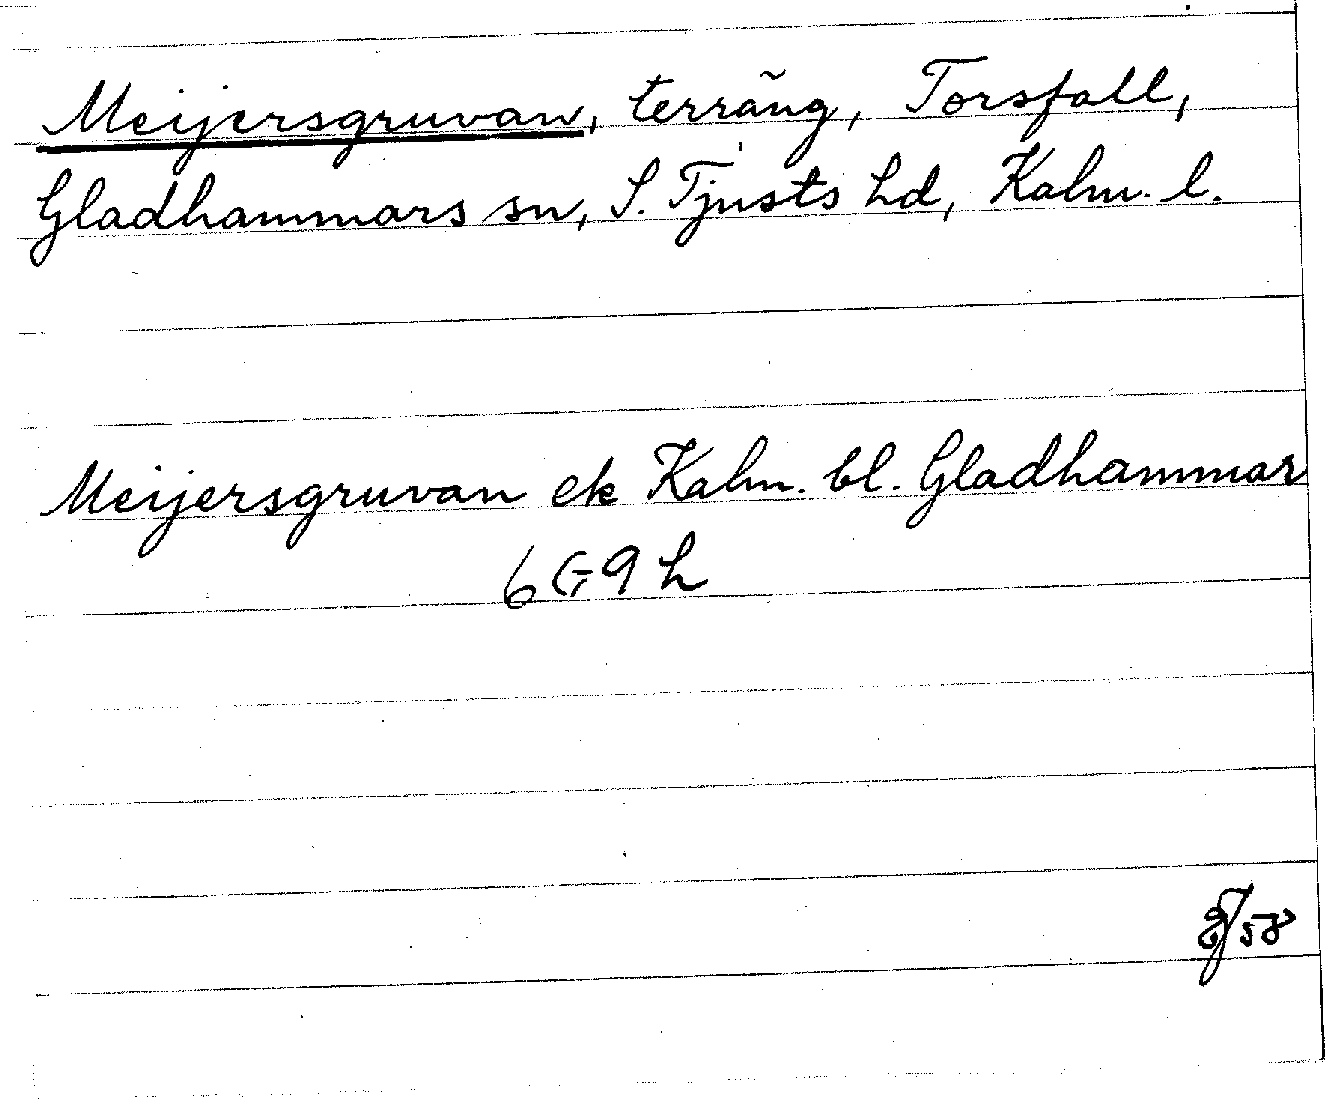 Meijersgruvan, terräng, Torsfall,
Gladhammars sn, S. Tjusts hd, Kalm. l.
Meijersgruvan ek Kalm. bl. Gladhammar
6G9h
58